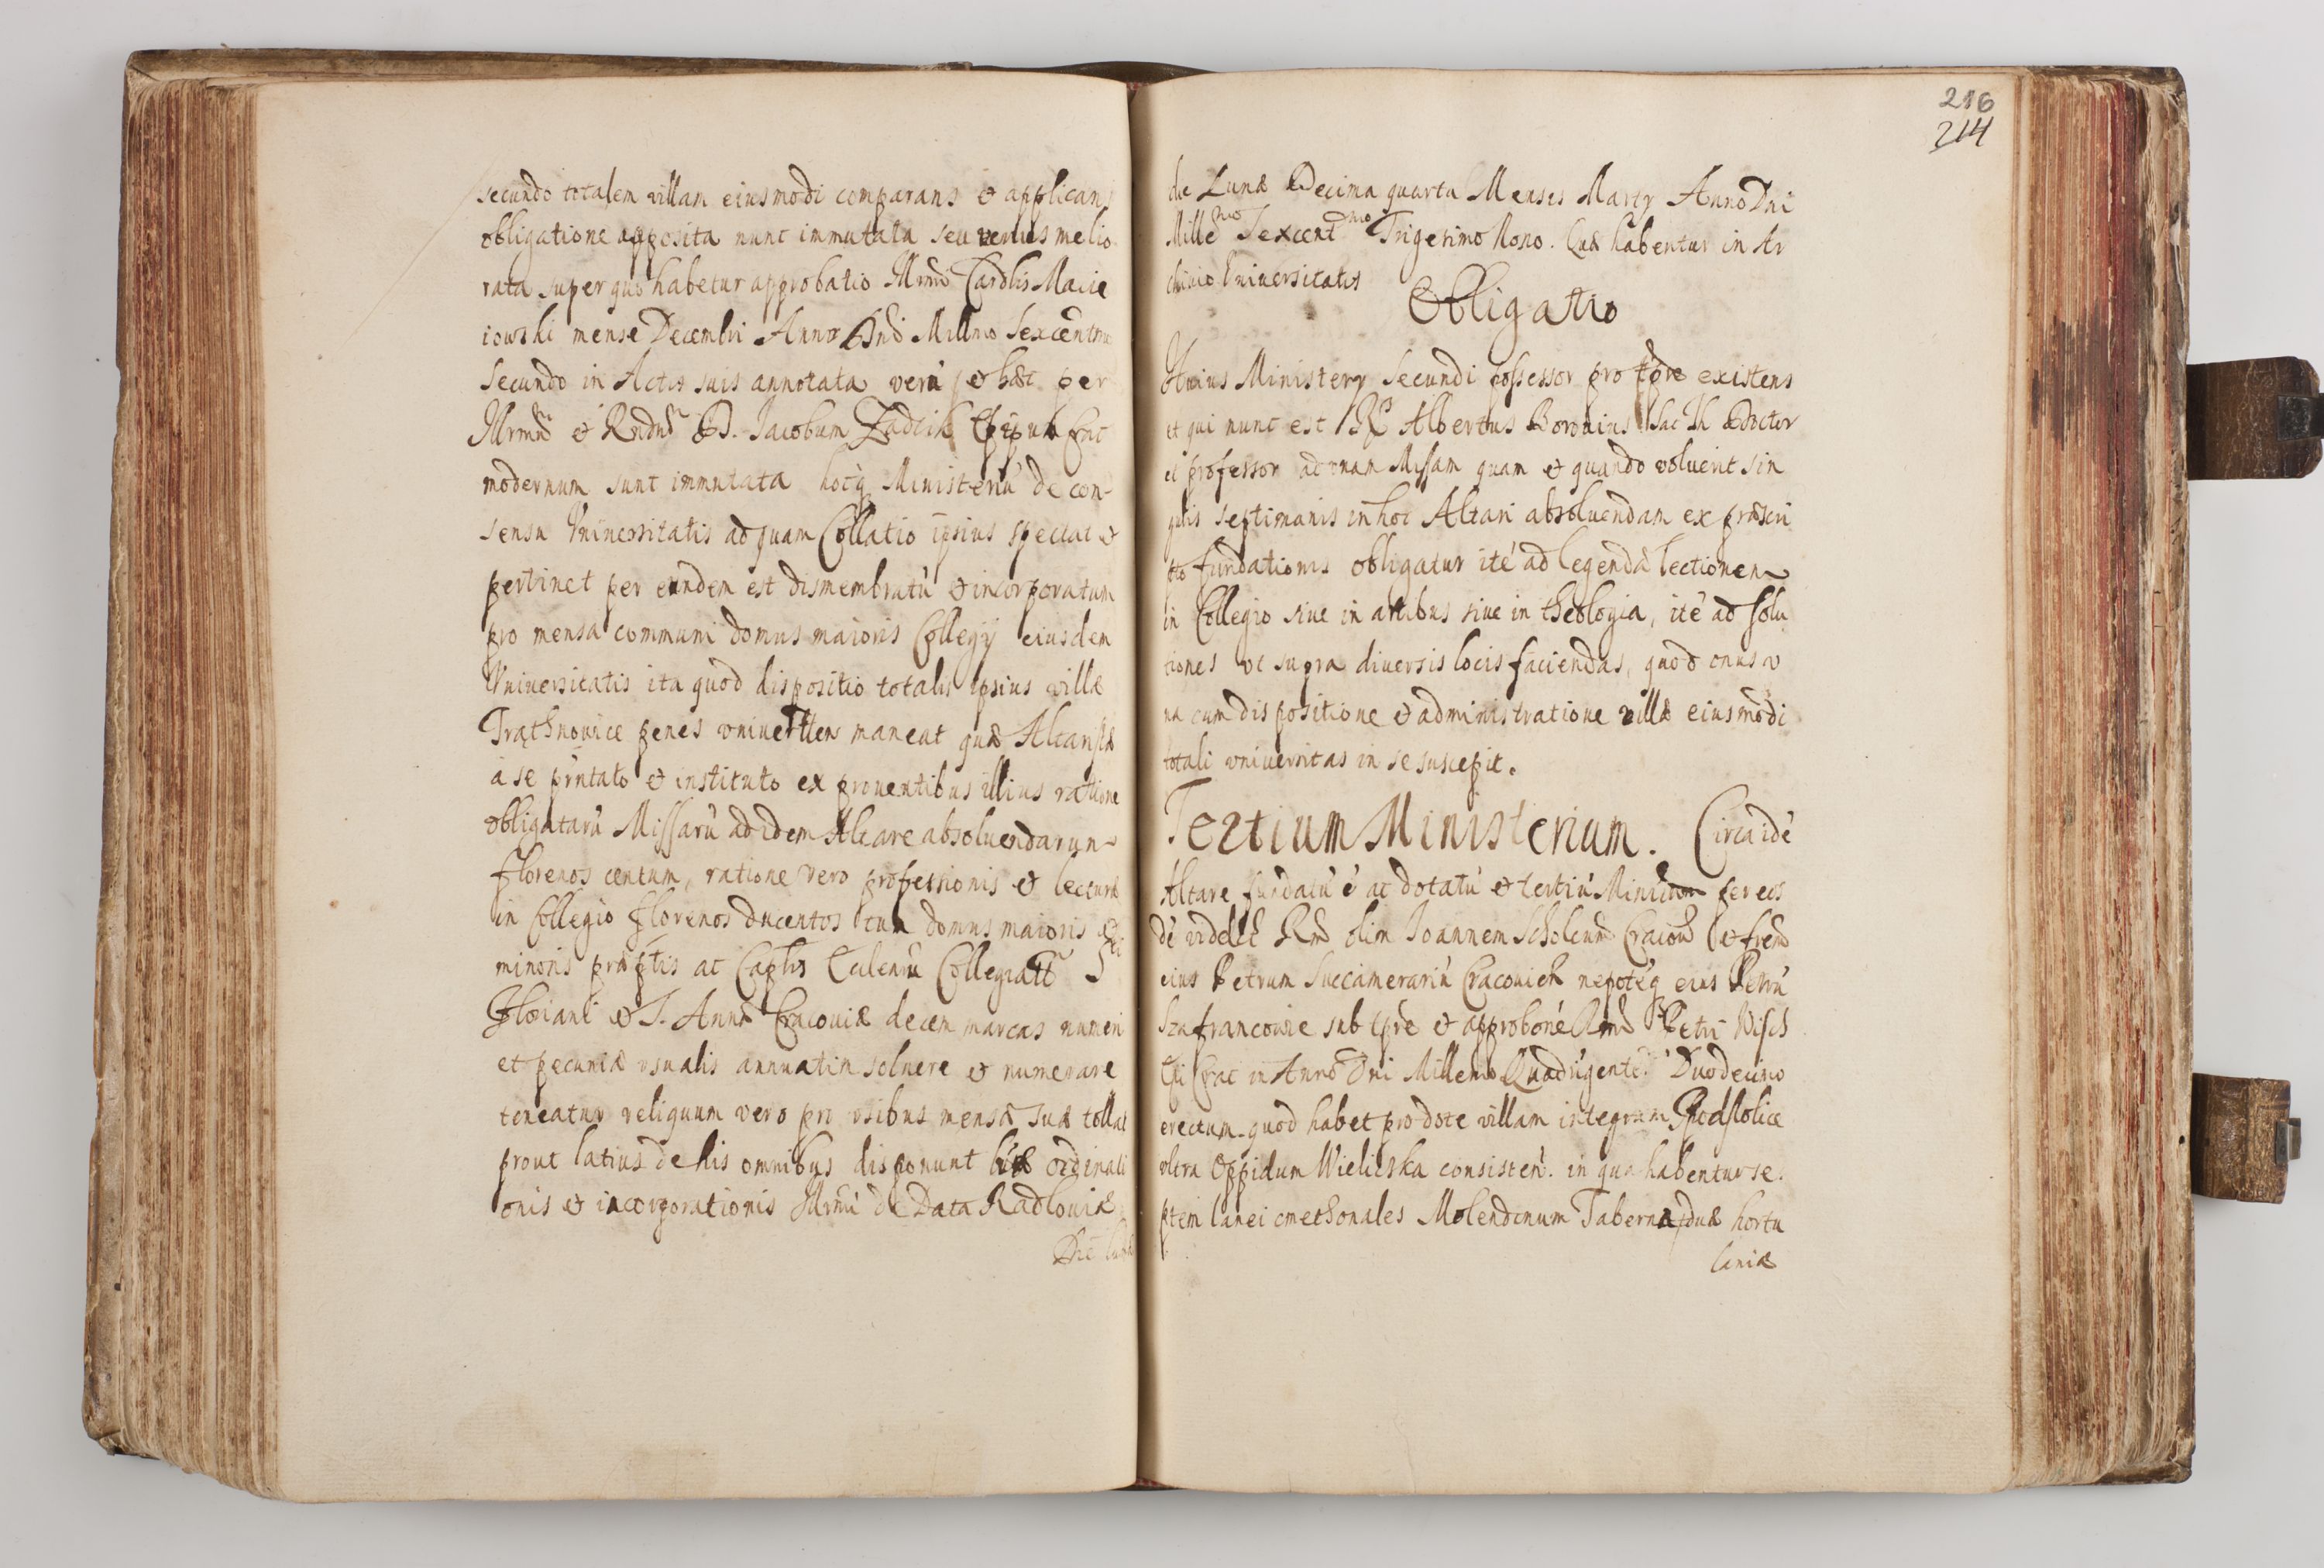 secundo totalem villam eiusmodi comparans et applicans
obligatione apposita nunc immutata seu verius melio
rata super quo habetur approbatio Illrmi Cardlis Macie
iowski mense Decembri Anno Dni Millmo Sexcentmo
Secundo in Actis suis annotata verũ et hæc per
Illrmũ et Rndũ D. Iacobum Zadzik Epũ Crac
modernum sunt immutata hocq Ministeriũ de con-
sensu Vniuersitatis ad quam Collatio ipsius spectat et
pertinet per eundem est dismembratũ et incorporatum
pro mensa communi domus maioris Collegij eiusdem
Vniuersitatis ita quod dispositio totalis ipsius villæ
Trąthnowice penes vniuertten maneat quæ Altaristæ
a se pñtato et instituto ex prouentibus illius ratione
obligatarũ Missarũ ad idem Altare absoluendarum
florenos centum, ratione vero professionis et lecturæ
in Collegio florenos ducentos tum domus maioris et
minoris præptis ac Caplis Ecclearũ Collegiatt Sti
Floriani et S. Annæ Cracouiæ decem marcas numeri
et pecuniæ vsualis annuatim soluere et numerare
teneatur reliquum vero pro vsibus mensæ suæ tollat
prout latius de his omnibus disponunt lræ ordinati
onis et incorporationis Illrmi de Data Radlouiæ
Die Lunæ
die Lunæ Decima quarta Menses Martij Anno Dni
Millemo Sexcentmo Trigesimo Nono. Quæ habentur in Ar
chiuio Vniuersitatis
Obligatio
Huius Ministerij Secundi possessor pro tpre existens
et qui nunc est R Albertus Boronius Sac Th Doctor
et professor ad vnam Missam quam et quando voluerit sin
gulis septimanis in hoc Altari absoluendam ex præscri
pto fundationis obligatur itẽ ad legendã lectionem
in Collegio siue in artibus siue in theologia, itẽ ad solu
tiones vt supra diuersis locis faciendas, quod onus v
na cum dispositione et administratione villæ eiusmodi
totali vniuersitas in se suscepit.
Tertium Ministerium. Circa idẽ
Altare fundatũ ẽ ac dotatũ et tertiũ Ministum per eos
dẽ videlt Rnd olim Ioannem Scholcum Cracou et frem
eius Petrum Succamerariũ Cracouien nepotẽq eius Petrũ
Szafrancowie sub tpre et approbone Rmd Petri Wisch
Epi Crac in Anno Dni Millemo Quadrigente. Duodecimo
erectum quod habet pro dote villam integram Podstolice
vltra Oppidum Wieliczka consisten. in qua habentur se.
ptem lanei cmethonales Molendinum Taberna duæ hortu
laniæ
216
214